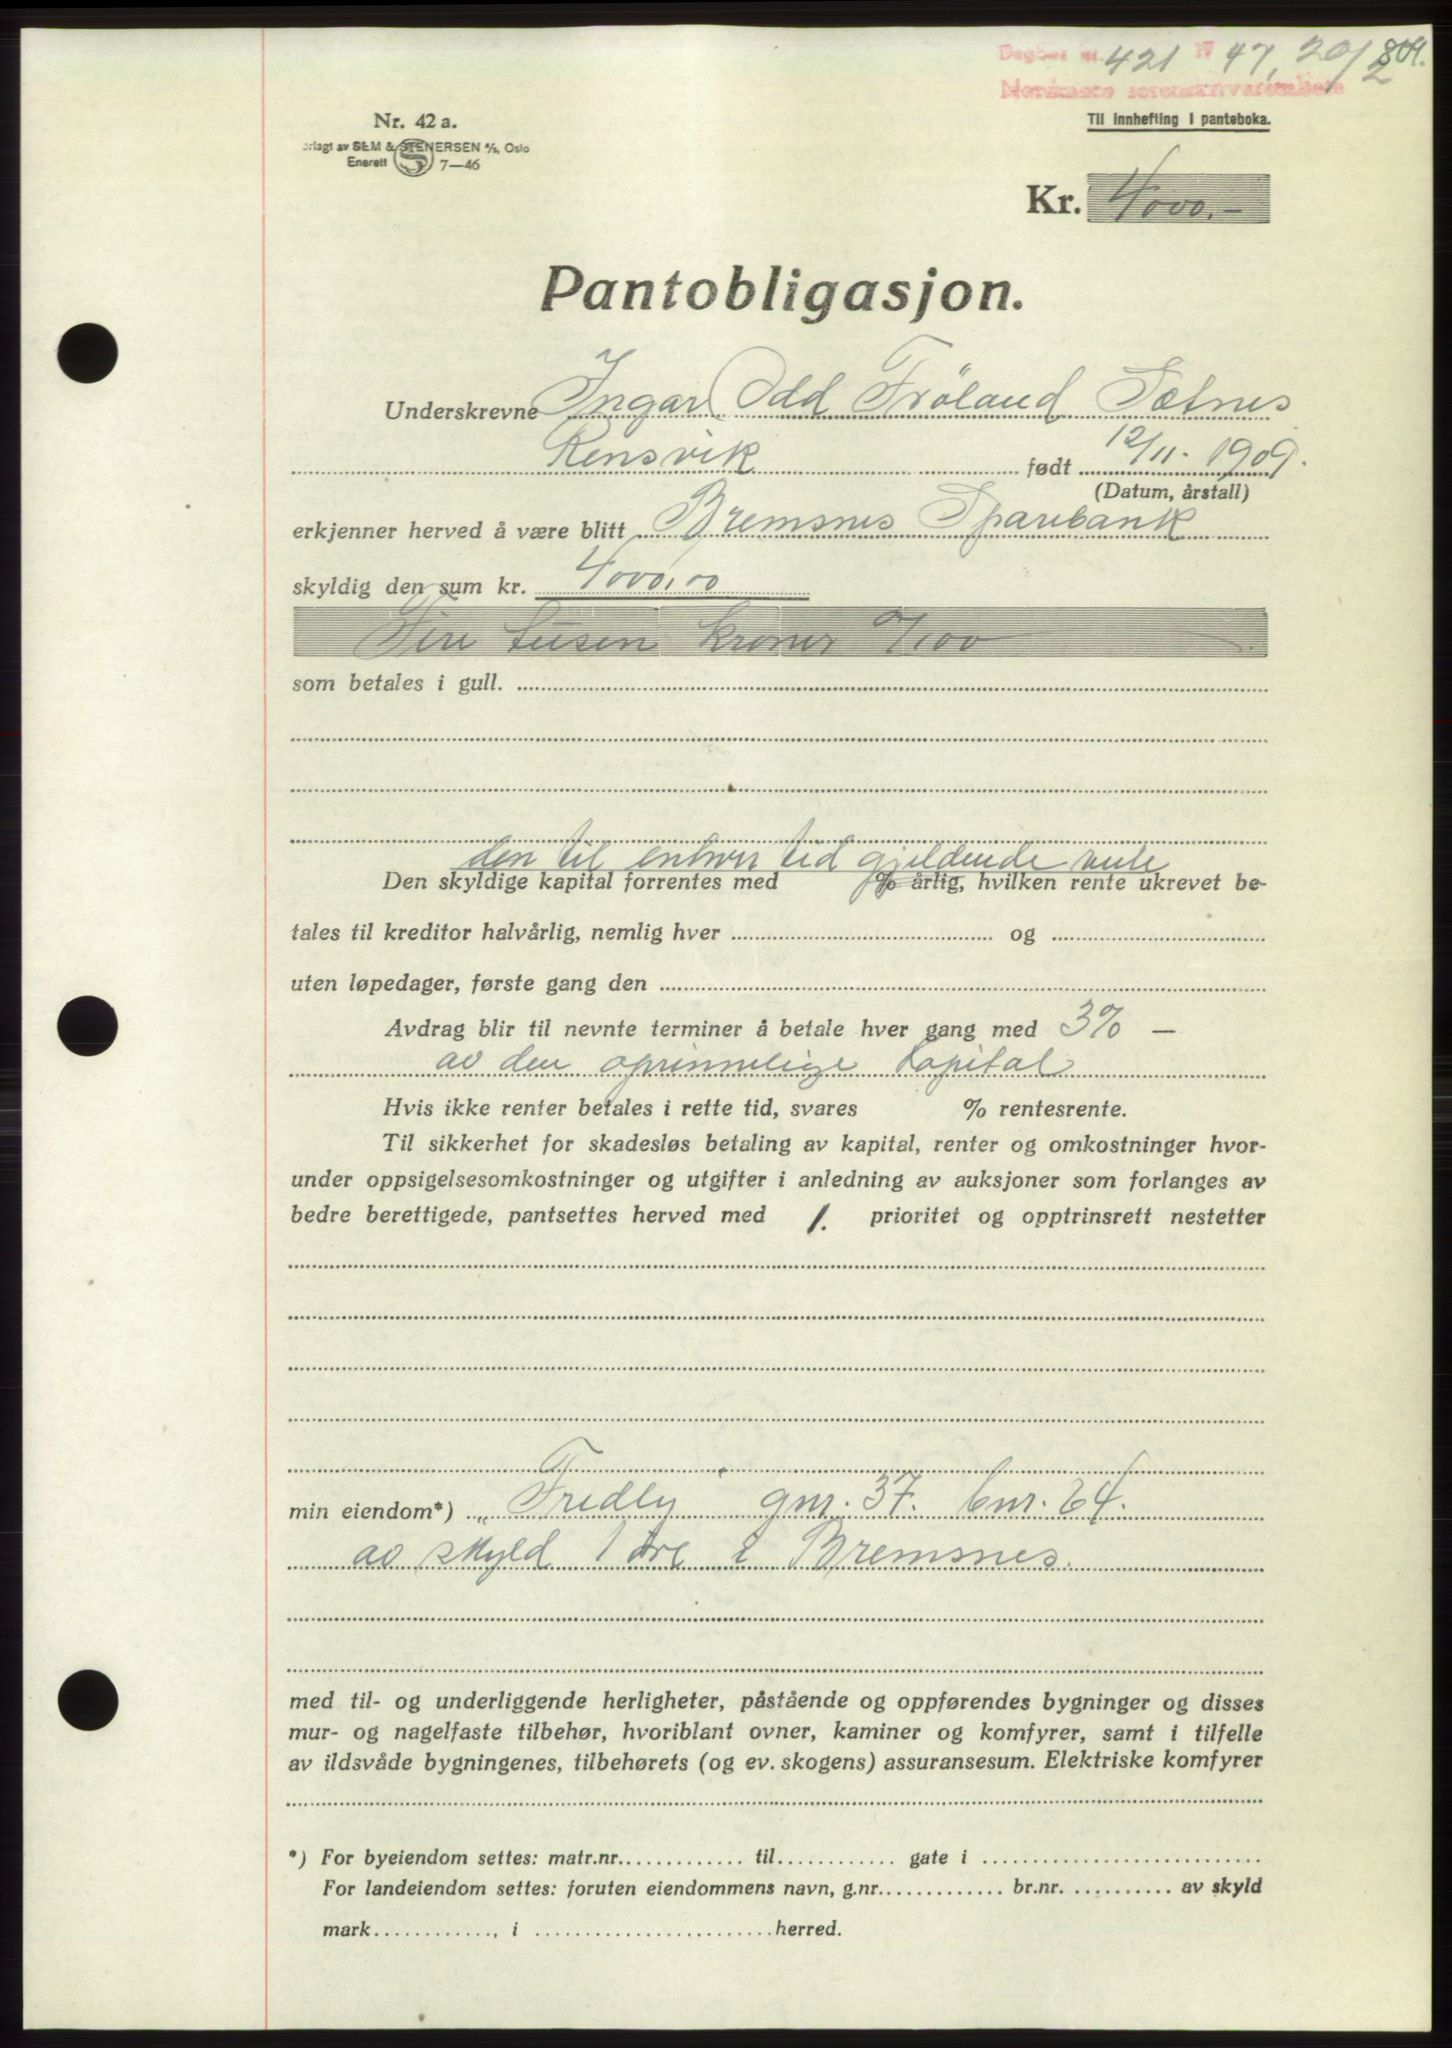 Dagbok nr. 421 19 47, 20/2 804.
Nordmøre sorenskriverembete
Nr. 42 a.
orlagt av SEM & STENERSEN A/S, Oslo
Enerett S 7—46
Til innhefting i panteboka.
Kr. 4000.-
Pantobligasjon.
Underskrevne Ingar Odd Frøland Sætnes
Rensvik født 12/11. 1909.
(Datum, årstall)
erkjenner herved å være blitt Bremsnes Sparebank
skyldig den sum kr. 4000,00
Fire tusen kroner 0/100
som betales i gull.
den til enhver tid gjeldende rente
Den skyldige kapital forrentes med % årlig, hvilken rente ukrevet be-
tales til kreditor halvårlig, nemlig hver og
uten løpedager, første gang den
Avdrag blir til nevnte terminer å betale hver gang med 3% —
av den oprinnelige kapital
Hvis ikke renter betales i rette tid, svares % rentesrente.
Til sikkerhet for skadesløs betaling av kapital, renter og omkostninger hvor-
under oppsigelsesomkostninger og utgifter i anledning av auksjoner som forlanges av
bedre berettigede, pantsettes herved med 1. prioritet og opptrinsrett nestetter
min eiendom*) „Fredly gnr. 37. bnr. 64.
av skyld 1 øre i Bremsnes.
med til- og underliggende herligheter, påstående og oppførendes bygninger og disses
mur- og nagelfaste tilbehør, hvoriblant ovner, kaminer og komfyrer, samt i tilfelle
av ildsvåde bygningenes, tilbehørets (og ev. skogens) assuransesum. Elektriske komfyrer
*) For byeiendom settes: matr.nr. til gate i
For landeiendom settes: foruten eiendommens navn, g.nr. br.nr. av skyld
mark , i herred.